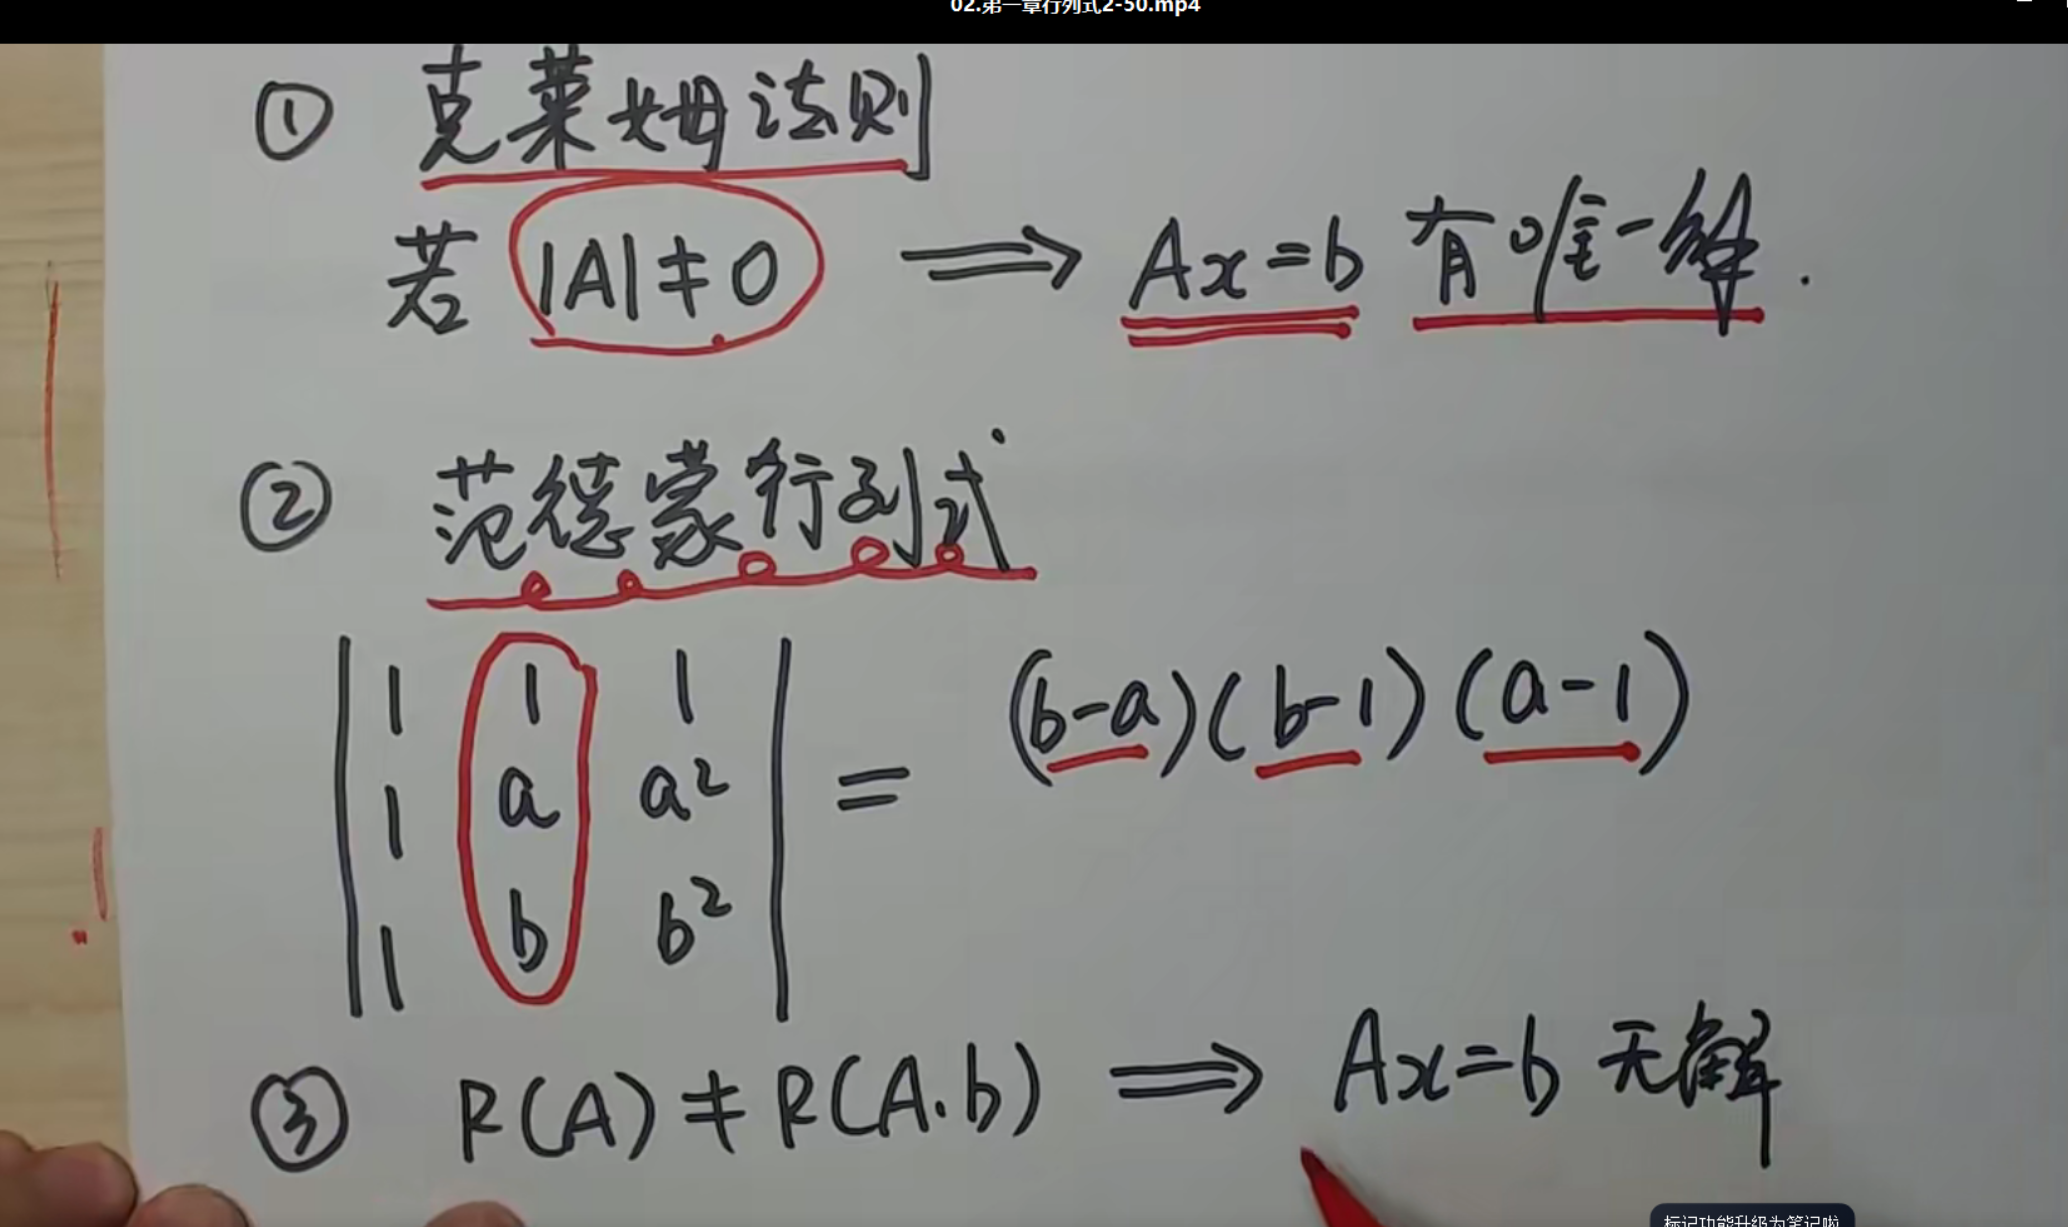 02.第一章行列式2-50.mp4
① 克莱姆法则
若 |A|≠0 ⟹ Ax=b 有唯一解.
② 范德蒙行列式
| 1 1 1 |
| 1 a a² | = (b-a)(b-1)(a-1)
| 1 b b² |
③ R(A)≠R(A.b) ⟹ Ax=b 无解
标记功能升级为笔记啦